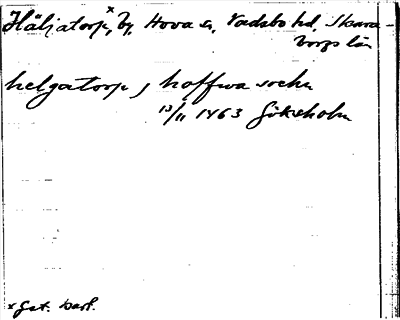 Häljatorp,ˣ by, Hova sn, Vadsbo hd, Skara-
borgs län
helgatorp j hoffwa sockn
13/11 1463 Göksholm
x Gst. kart.